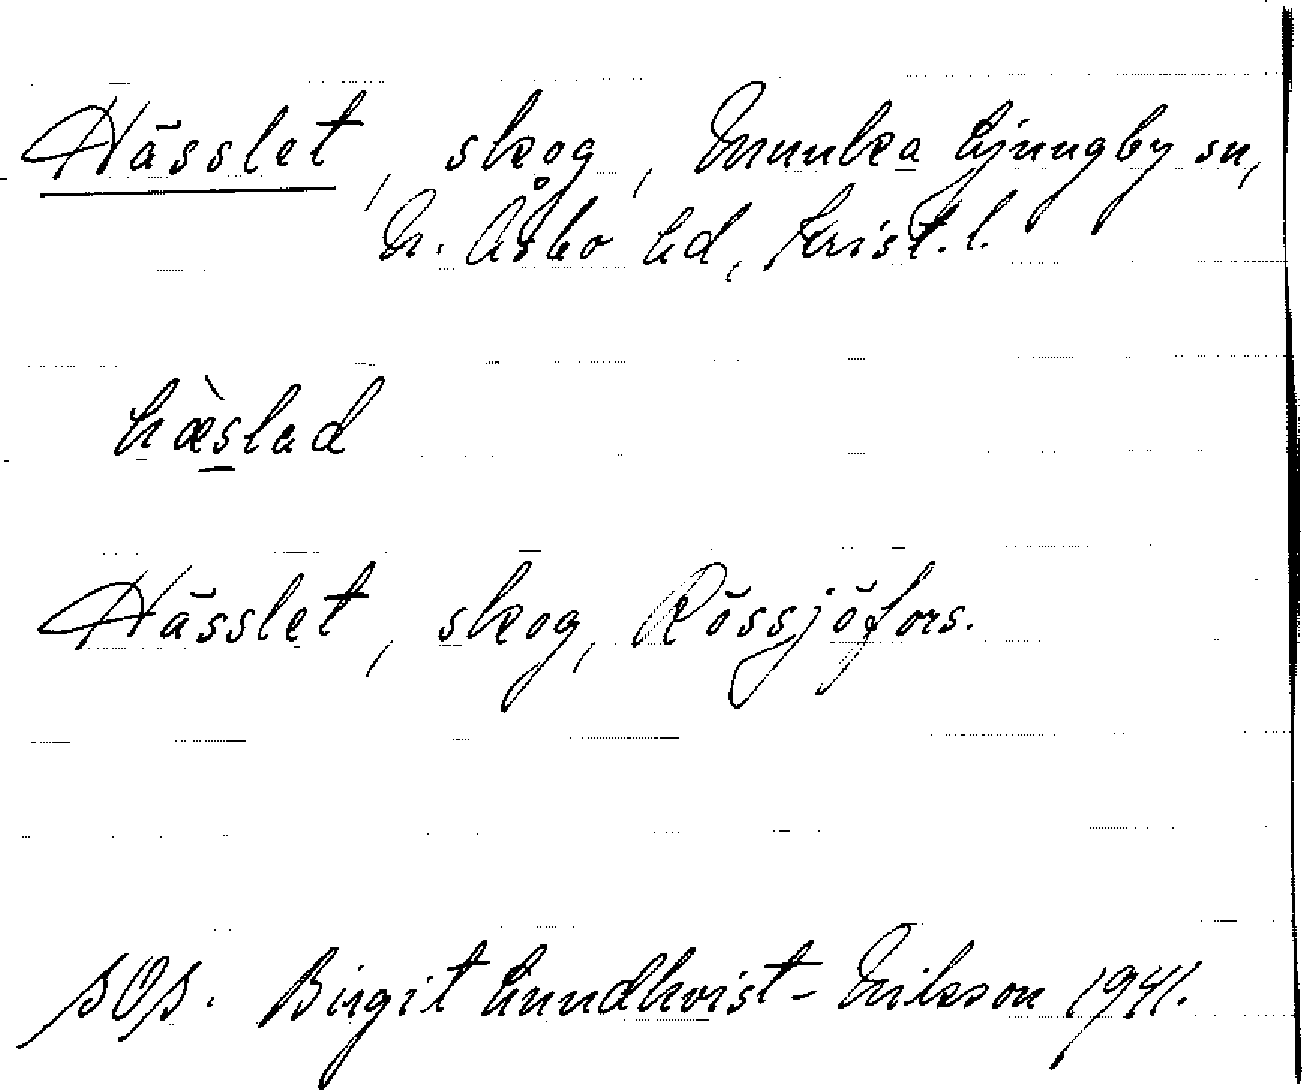 Hässlet, skog, Munka Ljungby sn,
N. Åsbo hd, Krist. l.
hæ̀slad
Hässlet, skog, Rössjöfors.
SOS. Birgit Lundkvist-Eriksson 1941.